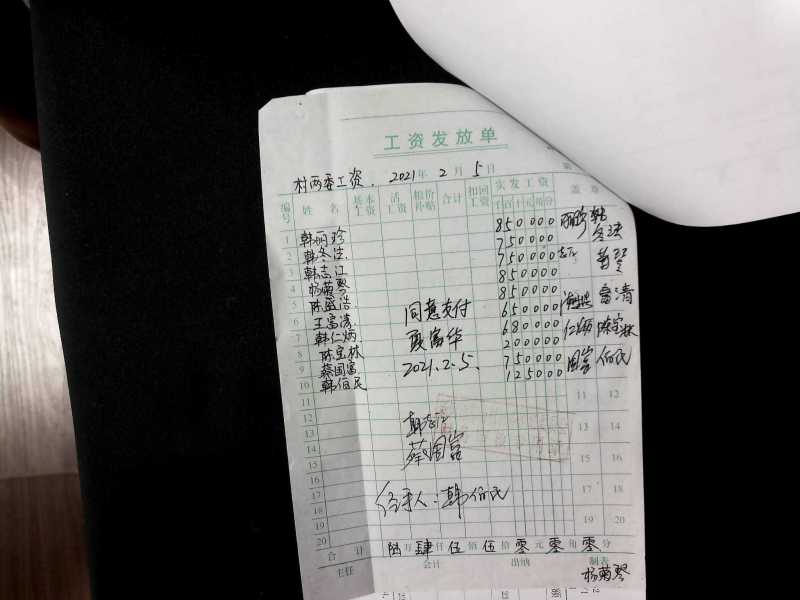 工资发放单
村两委工资. 2021年2月5日
编号 姓名 基本工资 活工资 粮价补贴 合计 扣回工资 实发工资 盖章
千百十元角分
1 韩丽珍 850000 丽珍
2 韩冬法 750000 韩冬法
3 韩志江 750000 志江
4 杨菊琴 850000 菊琴
5 850000
6 王富清 650000 富清
7 韩仁炳 680000 仁炳
8 陈宝林 200000 陈宝林
9 蔡国富 750000 国富
10 韩伯民 125000 伯民
同意支付
2021.2.5.
11 11 12
12
13 13 14
14 韩志江
15 蔡国富 15 16
16
17 17 18
18 经手人:韩伯民
19 19 20
20
合计 陆万肆仟伍佰伍拾零元零角零分
主任 会计 出纳 制表
杨菊琴